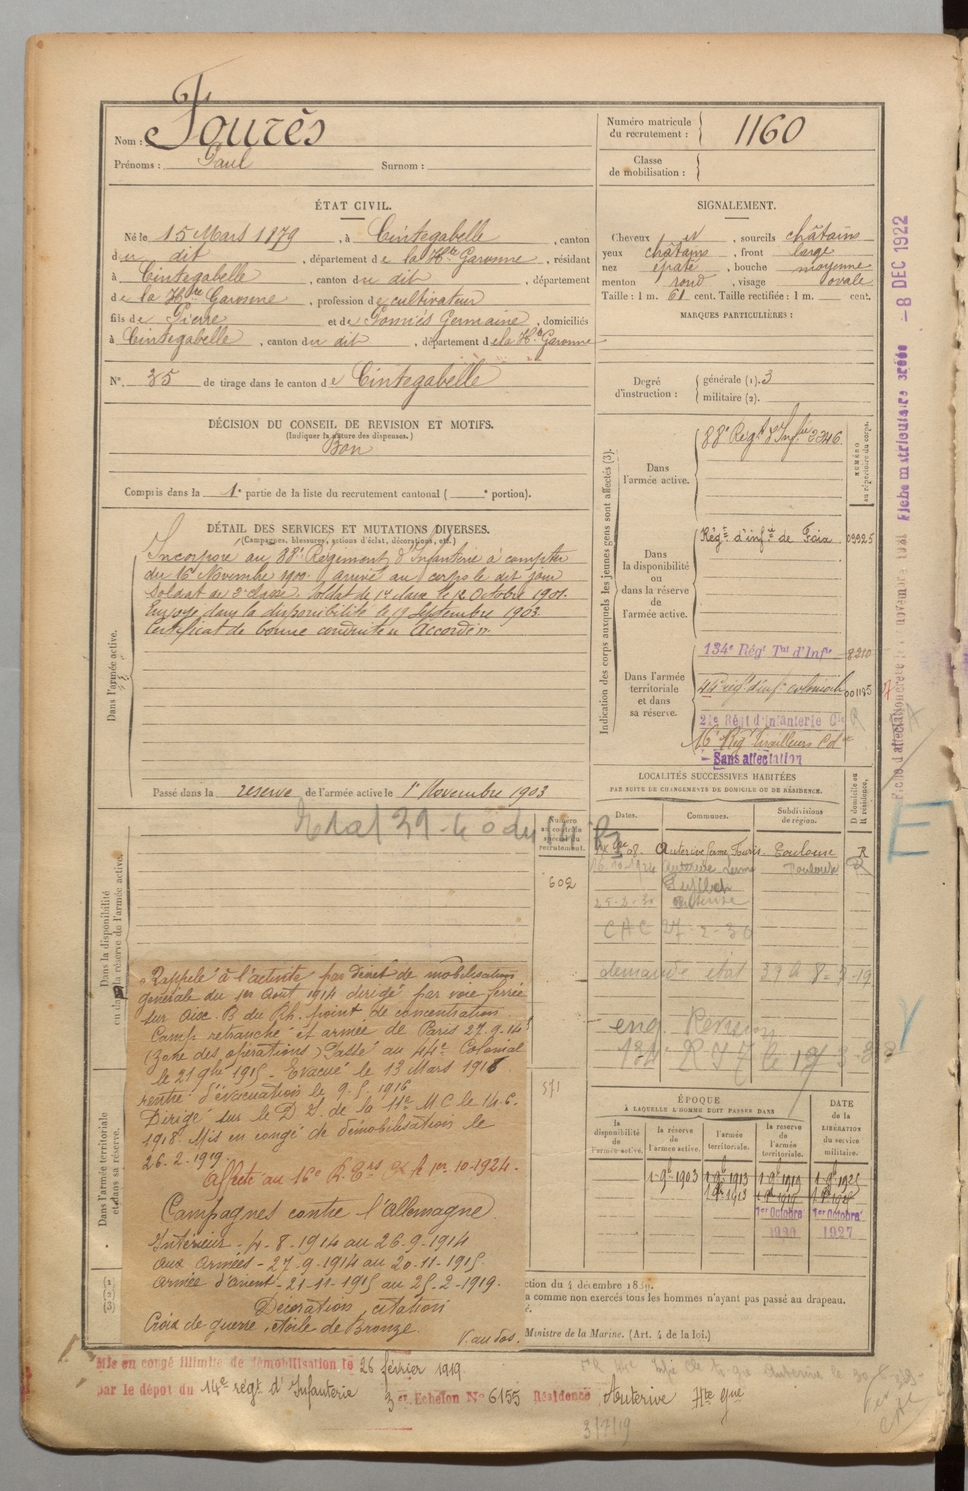 Nom : Fourès
Prénoms : Paul Surnom :
Numéro matricule du recrutement : 1160
Classe de mobilisation :
ÉTAT CIVIL.
Né le 15 Mars 1879, à Cintegabelle, canton
du dit, département de la Hte Garonne, résidant
à Cintegabelle, canton du dit, département
de la Hte Garonne, profession de cultivateur
fils de Pierre et de Gomès Germaine, domiciliés
à Cintegabelle, canton du dit, département de la Hte Garonne
N° 35 de tirage dans le canton de Cintegabelle
SIGNALEMENT.
Cheveux N, sourcils châtains
yeux châtains, front large
nez épaté, bouche moyenne
menton rond, visage ovale
Taille : 1 m. 61 cent. Taille rectifiée : 1 m. cent.
MARQUES PARTICULIÈRES :
Degré d'instruction : générale (1). 3
militaire (2).
DÉCISION DU CONSEIL DE REVISION ET MOTIFS.
(Indiquer la nature des dispenses.)
Bon
Compris dans la 1e partie de la liste du recrutement cantonal ( e portion).
DÉTAIL DES SERVICES ET MUTATIONS DIVERSES.
(Campagnes, blessures, actions d'éclat, décorations, etc.)
Dans l'armée active.
Incorporé au 88e Régiment d'Infanterie à compter
du 16 Novembre 1900. arrivé au corps le dit jour
Soldat de 2e classe. Soldat de 1re classe le 12 Octobre 1901.
Envoyé dans la disponibilité le 19 Septembre 1903
Certificat de bonne conduite "Accordé".
Passé dans la reserve de l'armée active le 1er Novembre 1903
Indication des corps auxquels les jeunes gens sont affectés (3).
NUMÉRO au répertoire du corps.
Dans l'armée active.
88e Régt d'Infrie 3346.
Dans la disponibilité ou dans la réserve de l'armée active.
Régt d'inf.ie de Foix 09925
Dans l'armée territoriale et dans sa réserve.
134e Régt Tal d'Infie 8210
44 rég. d'inf. coloniale 001185
21e Régt d'Infanterie Cle
16e Rég. Tirailleurs
- Sans affectation
LOCALITÉS SUCCESSIVES HABITÉES
PAR SUITE DE CHANGEMENTS DE DOMICILE OU DE RÉSIDENCE.
Dates. Communes. Subdivisions de région. D domicile ou R résidence.
Auterive Toulouse R
16-10-1924 Toulouse
CAC 27-2-30
demande état
Numéro au contrôle spécial du recrutement.
602
571
Dans la disponibilité ou dans la réserve de l'armée active.
Dans l'armée territoriale et dans sa réserve.
Rappelé à l'activité par décret de mobilisation
générale du 1er Aout 1914 dirigé par voie ferrée
sur Aix. B du Rh. point de concentration
Camp retranché et armée de Paris 27.9.14
(Zone des opérations) Passé au 44e Colonial
le 21 9bre 1915 - Evacué le 13 Mars 1916
rentré d'évacuation le 9.5.1916
Dirigé sur le D I. de la 11e M C le 14-6-
1918. Mis en congé de démobilisation le
26-2-1919.
Affecté au 16e le 1er 10-1924.
Campagnes contre l'Allemagne
Intérieur - 4-8-1914 au 26-9-1914
aux Armées - 27-9-1914 au 20-11-1915
Armée d'orient - 21-11-1915 au 25-2-1919.
Décoration, citation
Croix de guerre, étoile de Bronze.
V. au dos.
ÉPOQUE
À LAQUELLE L'HOMME DOIT PASSER DANS
la disponibilité de l'armée active.
la réserve de l'armée active.
l'armée territoriale.
la réserve de l'armée territoriale.
DATE de la LIBÉRATION du service militaire.
1 9b 1903 1 9b 1913 1 9b 1919 1 9b 1925
1er Octobre 1er Octobre
1920 1927
ction du 4 décembre 1889.
a comme non exercés tous les hommes n'ayant pas passé au drapeau.
é.
Ministre de la Marine. (Art. 4 de la loi.)
Mis en congé illimité de démobilisation le 26 février 1919
par le dépot du 14e régt d'Infanterie 3e Echelon N° 6155 Résidence Auterive Hte Gne
3/7/19
Fiche matriculaire créée - 8 DEC 1922